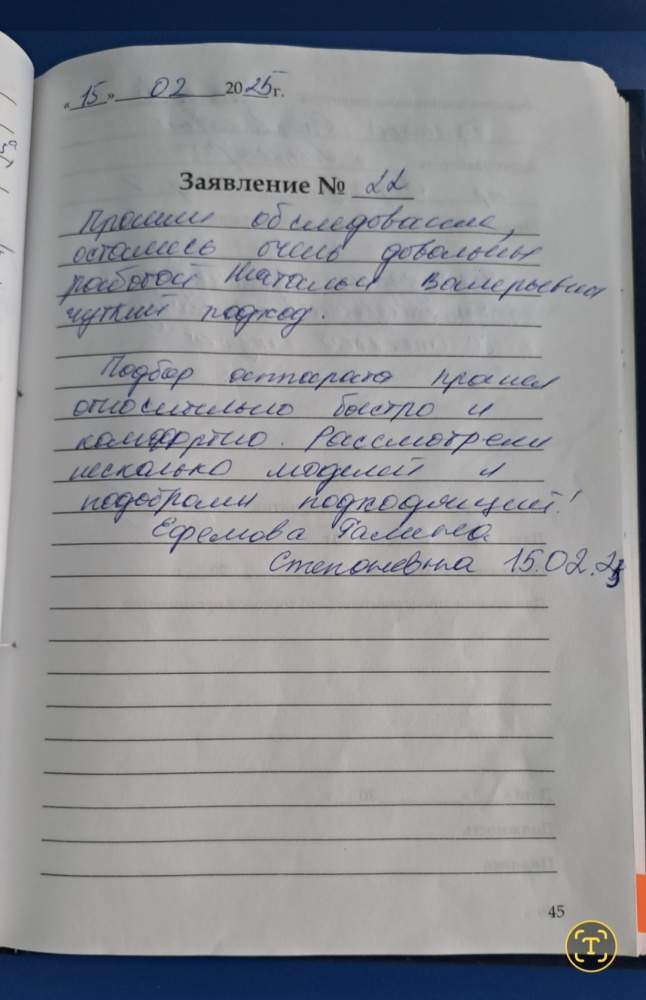 «15» 02 2025 г.
Заявление № 22
Прошли обследование,
остались очень довольны
работой Натальи Валерьевны
чуткий подход.
Подбор аппарата прошел
относительно быстро и
комфортно. Рассмотрели
несколько моделей и
подобрали подходящий!
Ефемова Галина
Степановна 15.02.25
45